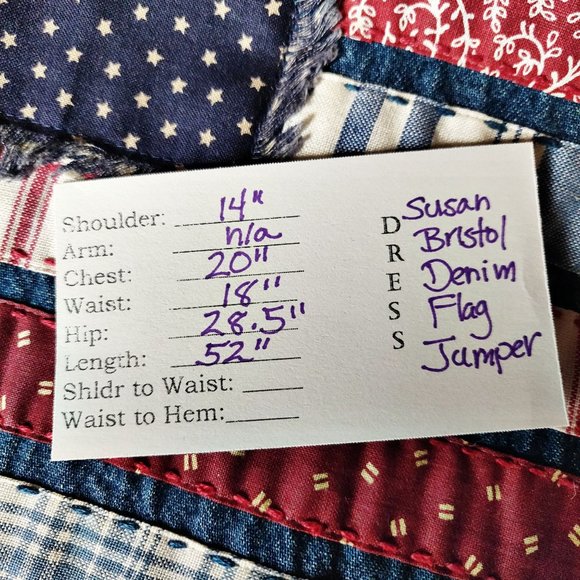 Shoulder: 14"
Arm: n/a
Chest: 20"
Waist: 18"
Hip: 28.5"
Length: 52"
Shldr to Waist:
Waist to Hem:
DRESS
Susan
Bristol
Denim
Flag
Jumper